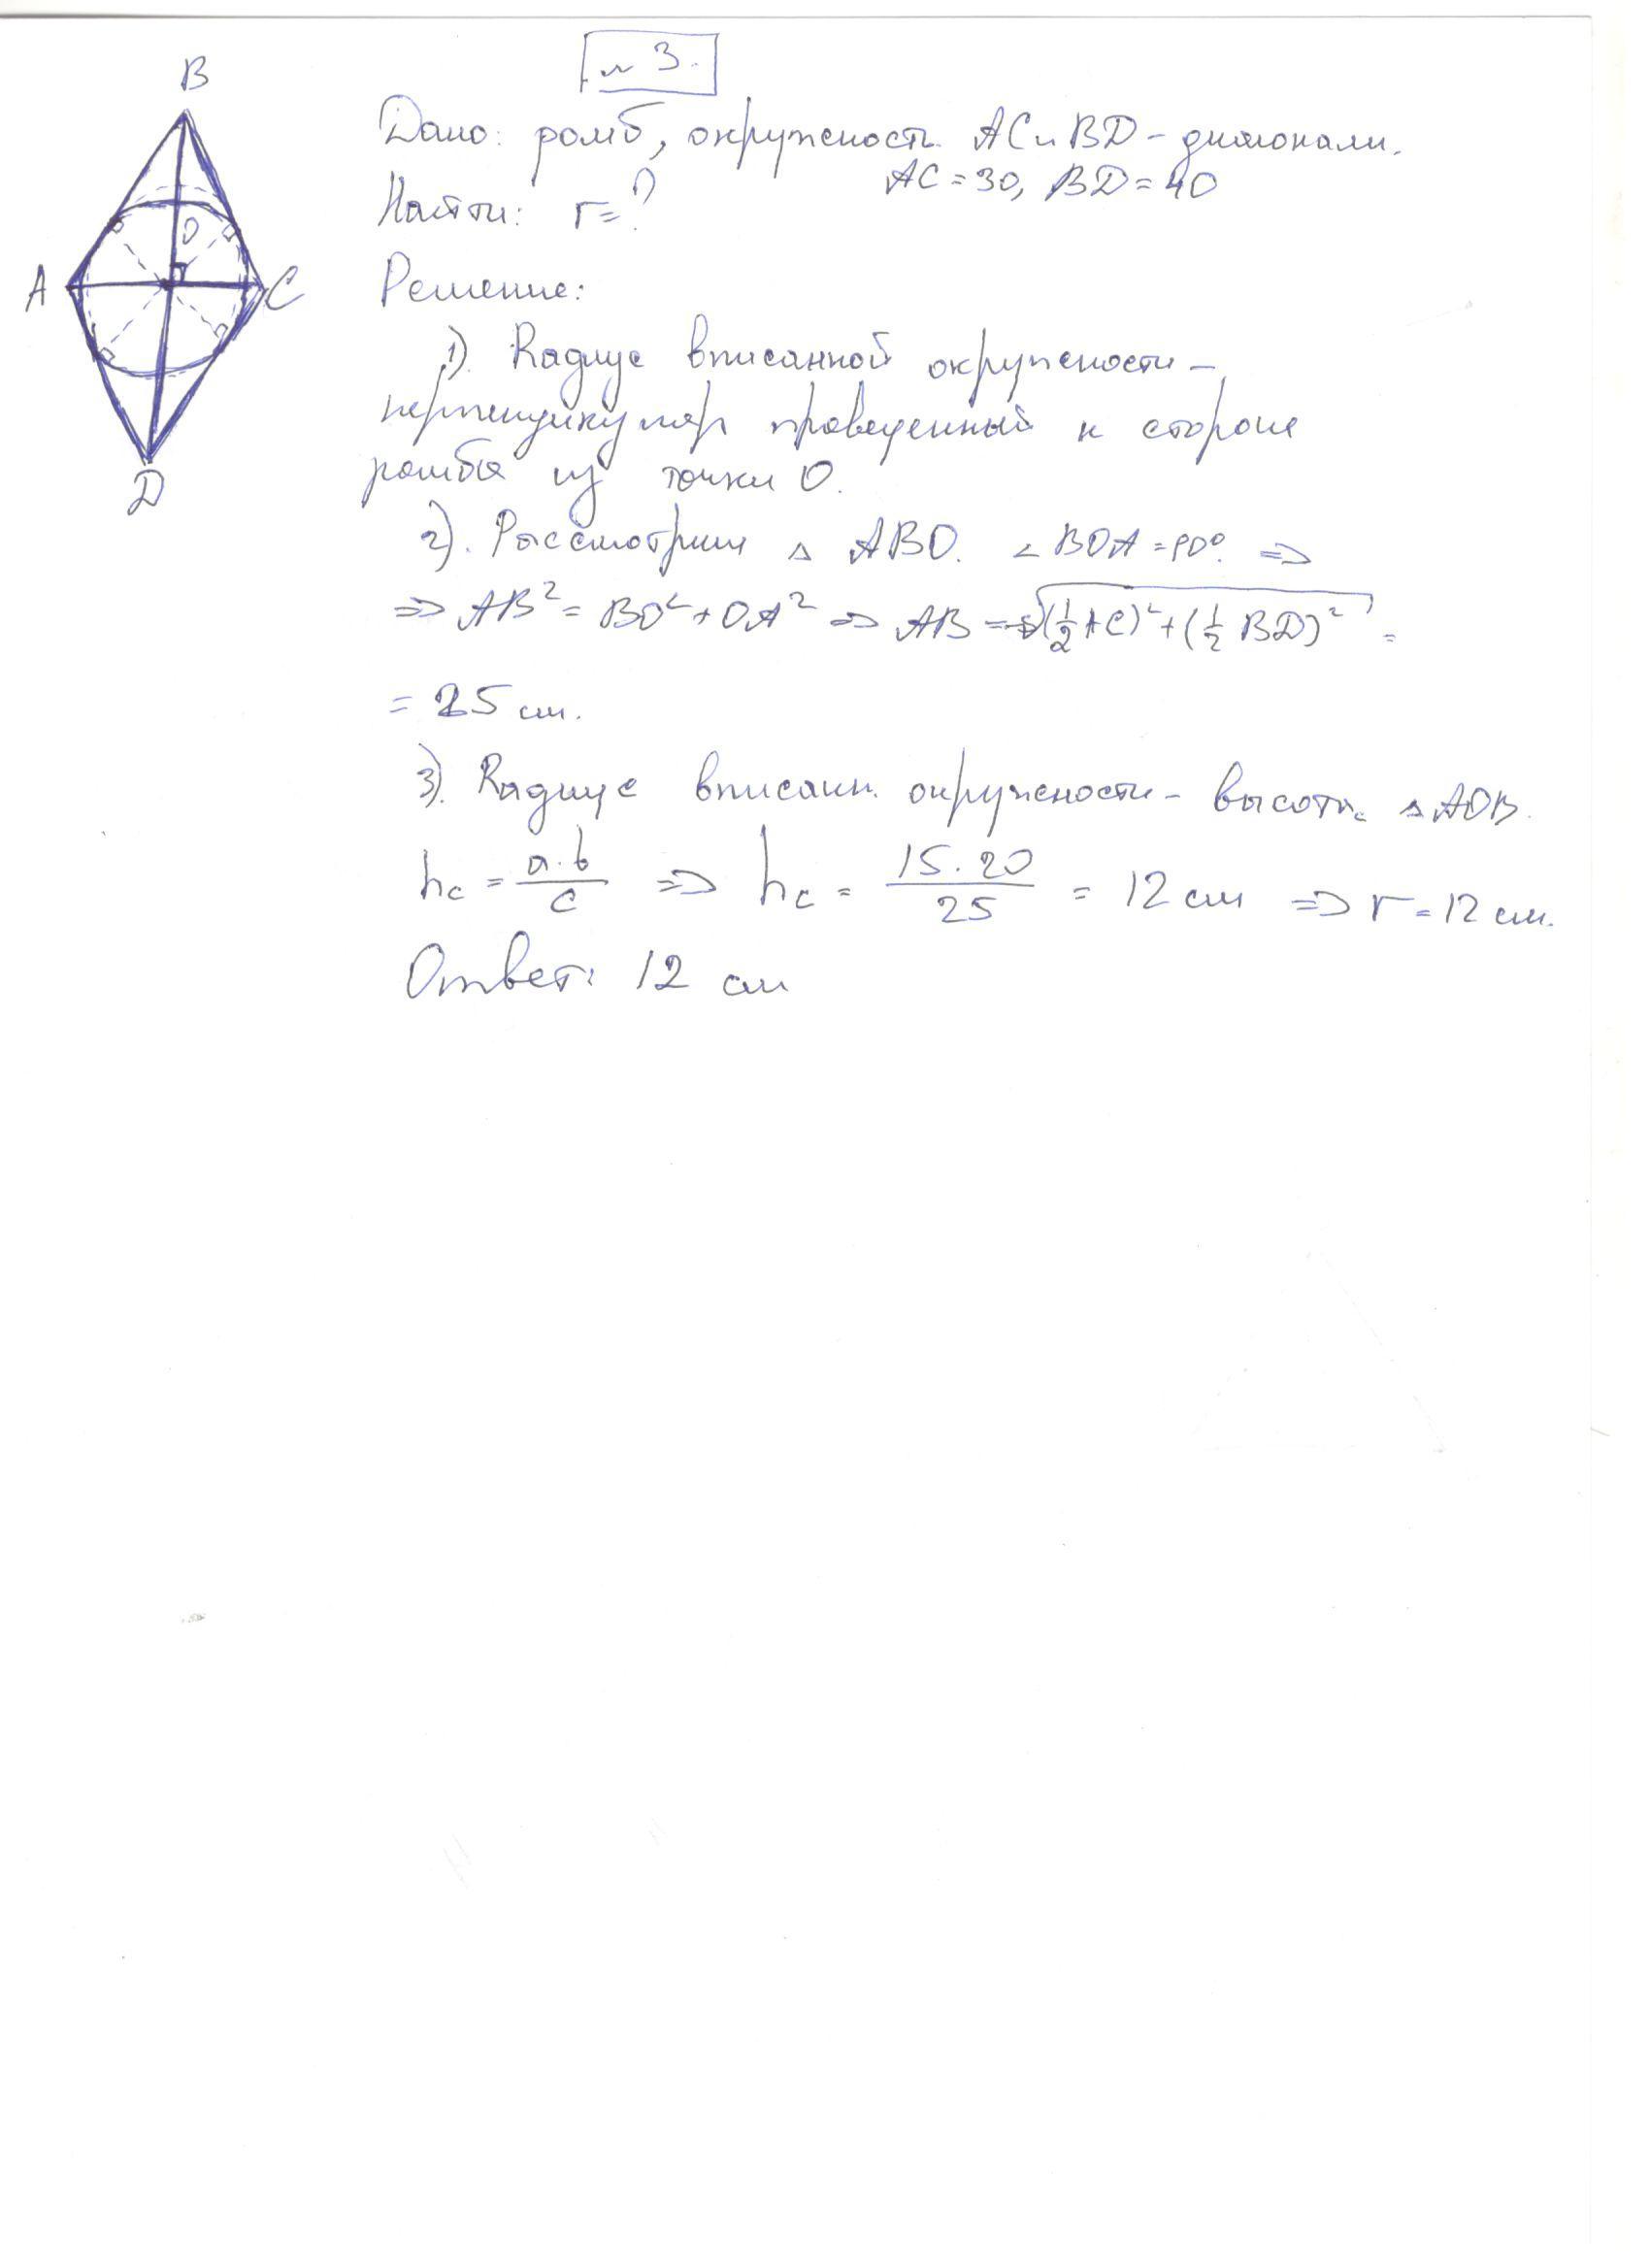 B
A
C
O
D
№ 3.
Дано: ромб, окружность. AC и BD - диагонали.
AC = 30, BD = 40
Найти: r = ?
Решение:
1). Rадиус вписанной окружности -
перпендикуляр проведенный к стороне
ромба из точки O.
2). Рассмотрим △ ABO. ∠ BOA = 90°. ⇒
⇒ AB² = BO² + OA² ⇒ AB = √((1/2 AC)² + (1/2 BD)²) =
= 25 см.
3). Rадиус вписанн. окружности - высота △ AOB.
hc = a·b/c ⇒ hc = 15·20/25 = 12 см ⇒ r = 12 см.
Ответ: 12 см